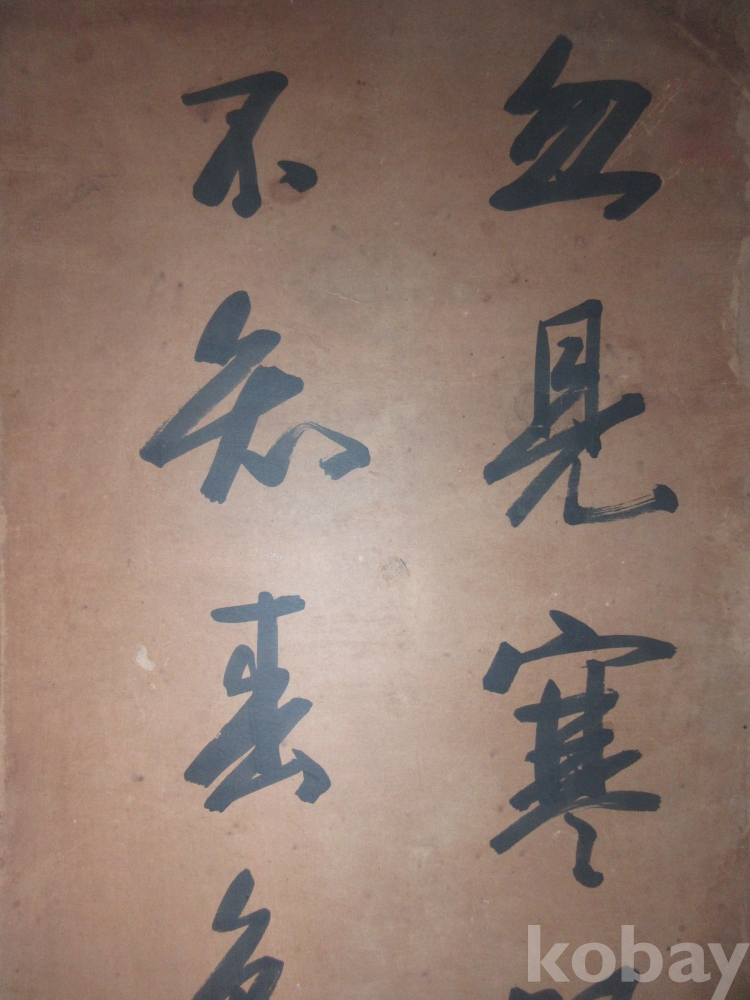 忽見寒
不知春色
kobay